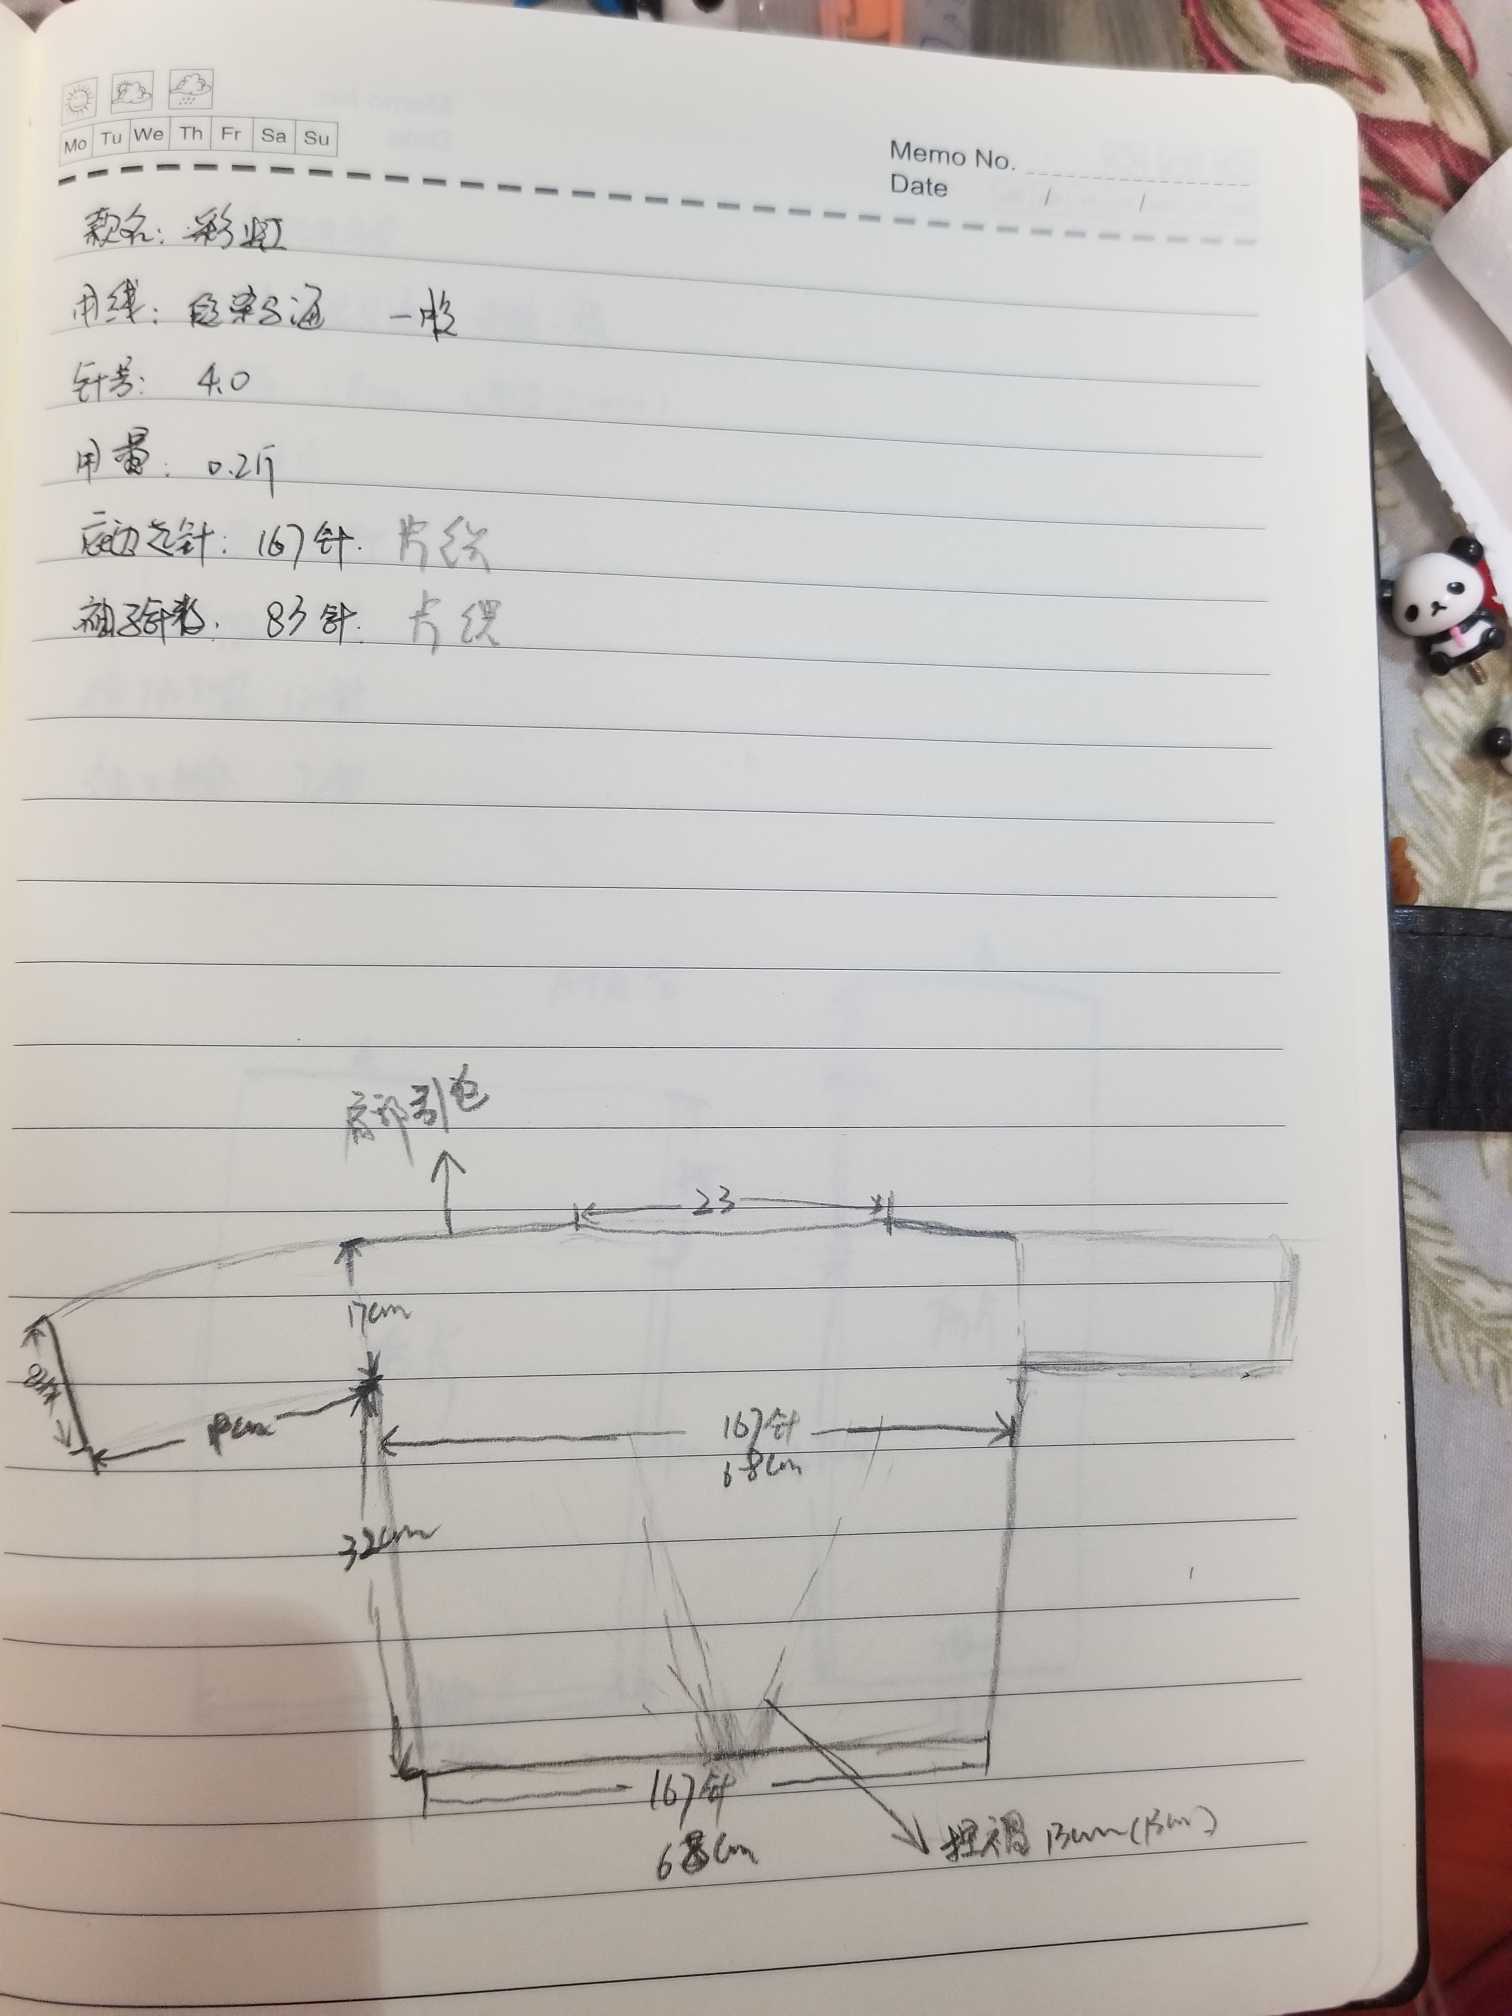 Mo Tu We Th Fr Sa Su
Memo No.
Date / /
款名: 彩虹
用线: 段染马海 一股
针号: 4.0
用量: 0.2斤
底边起针: 167针. 片织
袖子针数. 83针. 片织
肩部引返
23
17cm
167针
68cm
32cm
167针
68cm
捏褶 13cm